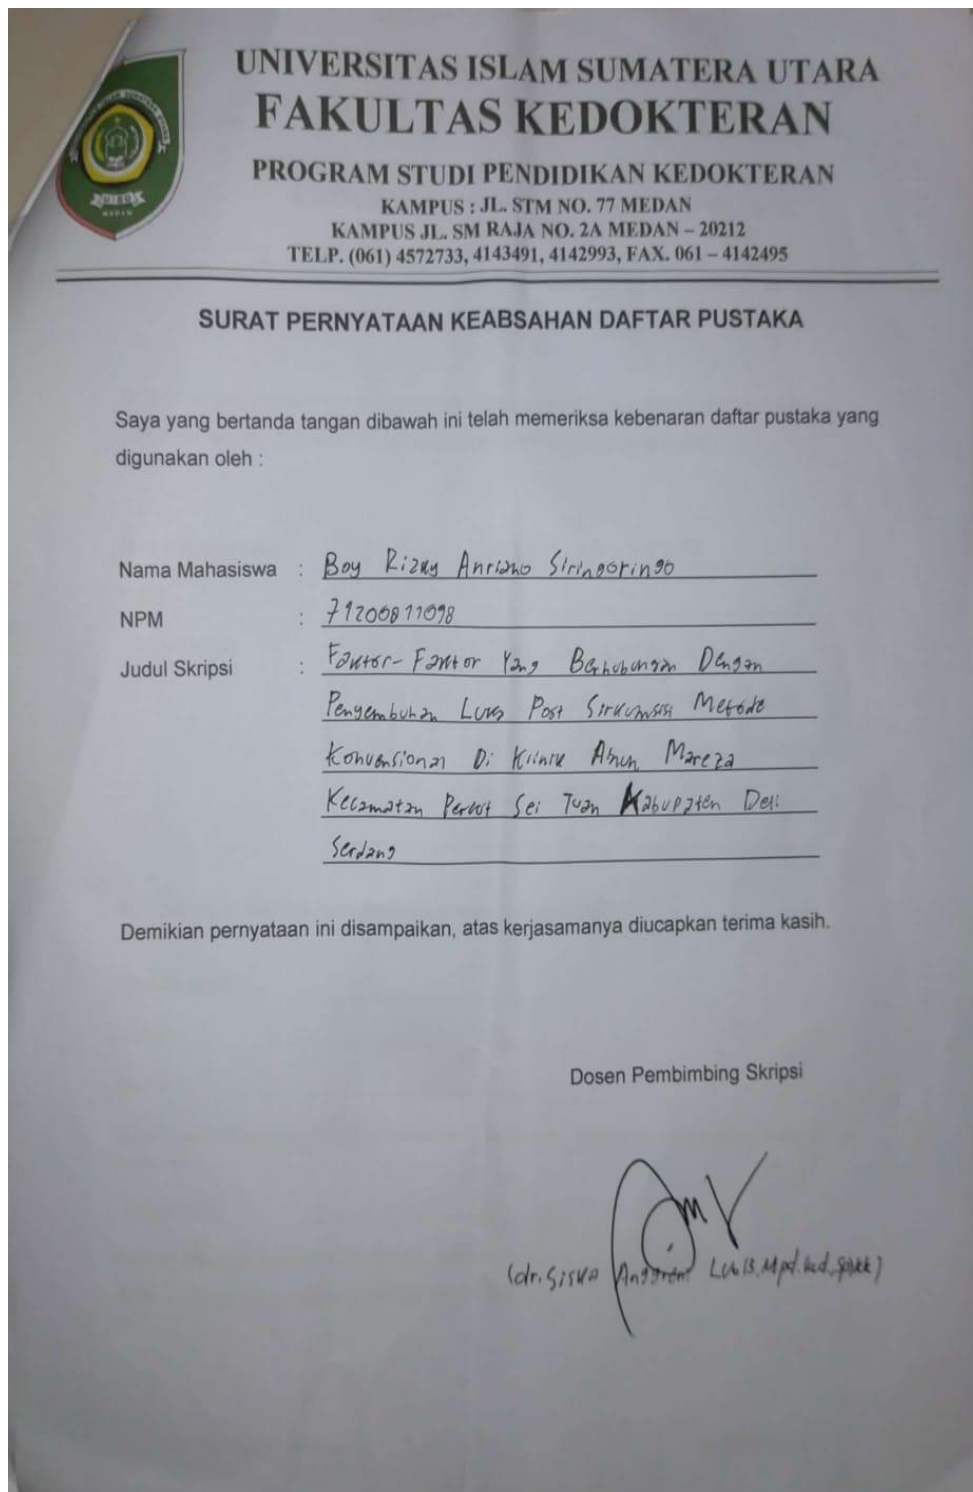 UNIVERSITAS ISLAM SUMATERA UTARA
FAKULTAS KEDOKTERAN
PROGRAM STUDI PENDIDIKAN KEDOKTERAN
KAMPUS : JL. STM NO. 77 MEDAN
KAMPUS JL. SM RAJA NO. 2A MEDAN – 20212
TELP. (061) 4572733, 4143491, 4142993, FAX. 061 – 4142495
UISU
MEDAN
SURAT PERNYATAAN KEABSAHAN DAFTAR PUSTAKA
Saya yang bertanda tangan dibawah ini telah memeriksa kebenaran daftar pustaka yang
digunakan oleh :
Nama Mahasiswa : Boy Rizky Anriano Siringoringo
NPM : 71200811098
Judul Skripsi : Faktor-Faktor Yang Berhubungan Dengan
Penyembuhan Luka Post Sirkumsisi Metode
Konvensional Di Klinik Mareza
Kecamatan Percut Sei Tuan Kabupaten Deli
Serdang
Demikian pernyataan ini disampaikan, atas kerjasamanya diucapkan terima kasih.
Dosen Pembimbing Skripsi
(dr. Siska Anggreni Lubis, Mpd.ked, SpKK)